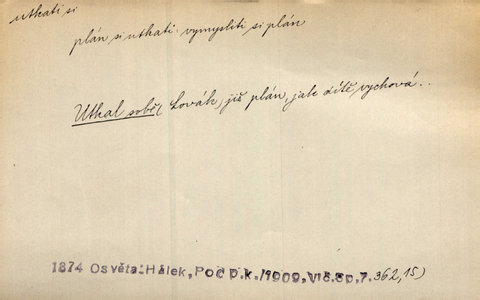 utkati si
plán si utkati: vymysliti si plán
Utkal sobě Lovák, již plán, jak dítě vychová..
1874 Osvěta: Hálek, Poč p.k. /1909, Vlč.Sp.7. 362,15)